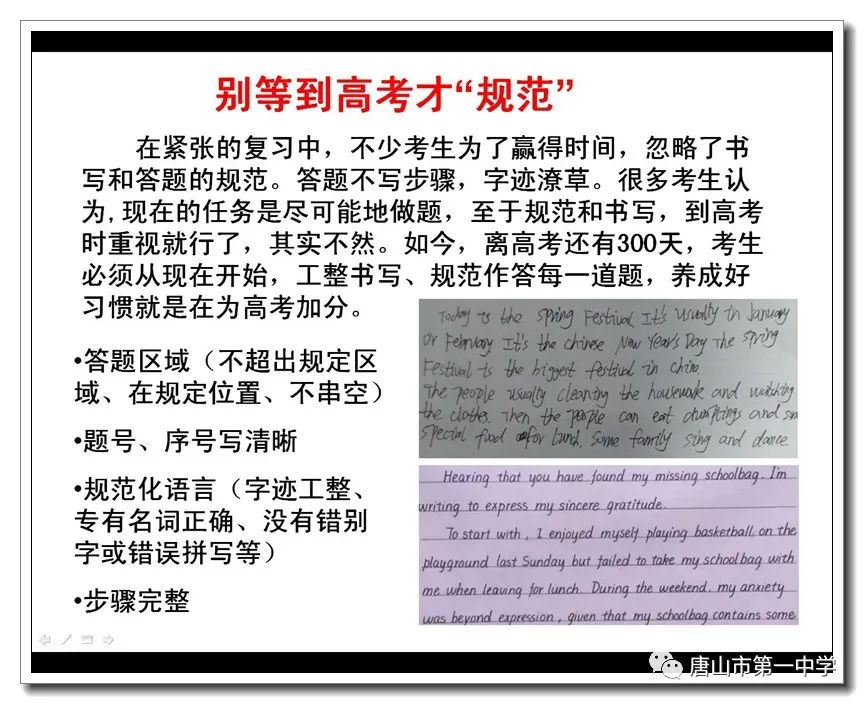 别等到高考才“规范”
在紧张的复习中，不少考生为了赢得时间，忽略了书
写和答题的规范。答题不写步骤，字迹潦草。很多考生认
为,现在的任务是尽可能地做题，至于规范和书写，到高考
时重视就行了，其实不然。如今，离高考还有300天，考生
必须从现在开始，工整书写、规范作答每一道题，养成好
习惯就是在为高考加分。
•答题区域（不超出规定区
域、在规定位置、不串空）
•题号、序号写清晰
•规范化语言（字迹工整、
专有名词正确、没有错别
字或错误拼写等）
•步骤完整
Today is the spring Festival. It's usually in January
or February It's the chinese New Year's Day The spring
Festival is the biggest festival in china.
The people usually cleaning the housework and watching
the clothes. Then the people can eat dumptings and som
special food for lunch. Some family sing and dance
Hearing that you have found my missing schoolbag. I'm
writing to express my sincere gratitude.
To start with, I enjoyed myself playing basketball on the
playground last Sunday but failed to take my schoolbag with
me when leaving for lunch. During the weekend, my anxiety
was beyond expression, given that my schoolbag contains some
唐山市第一中学